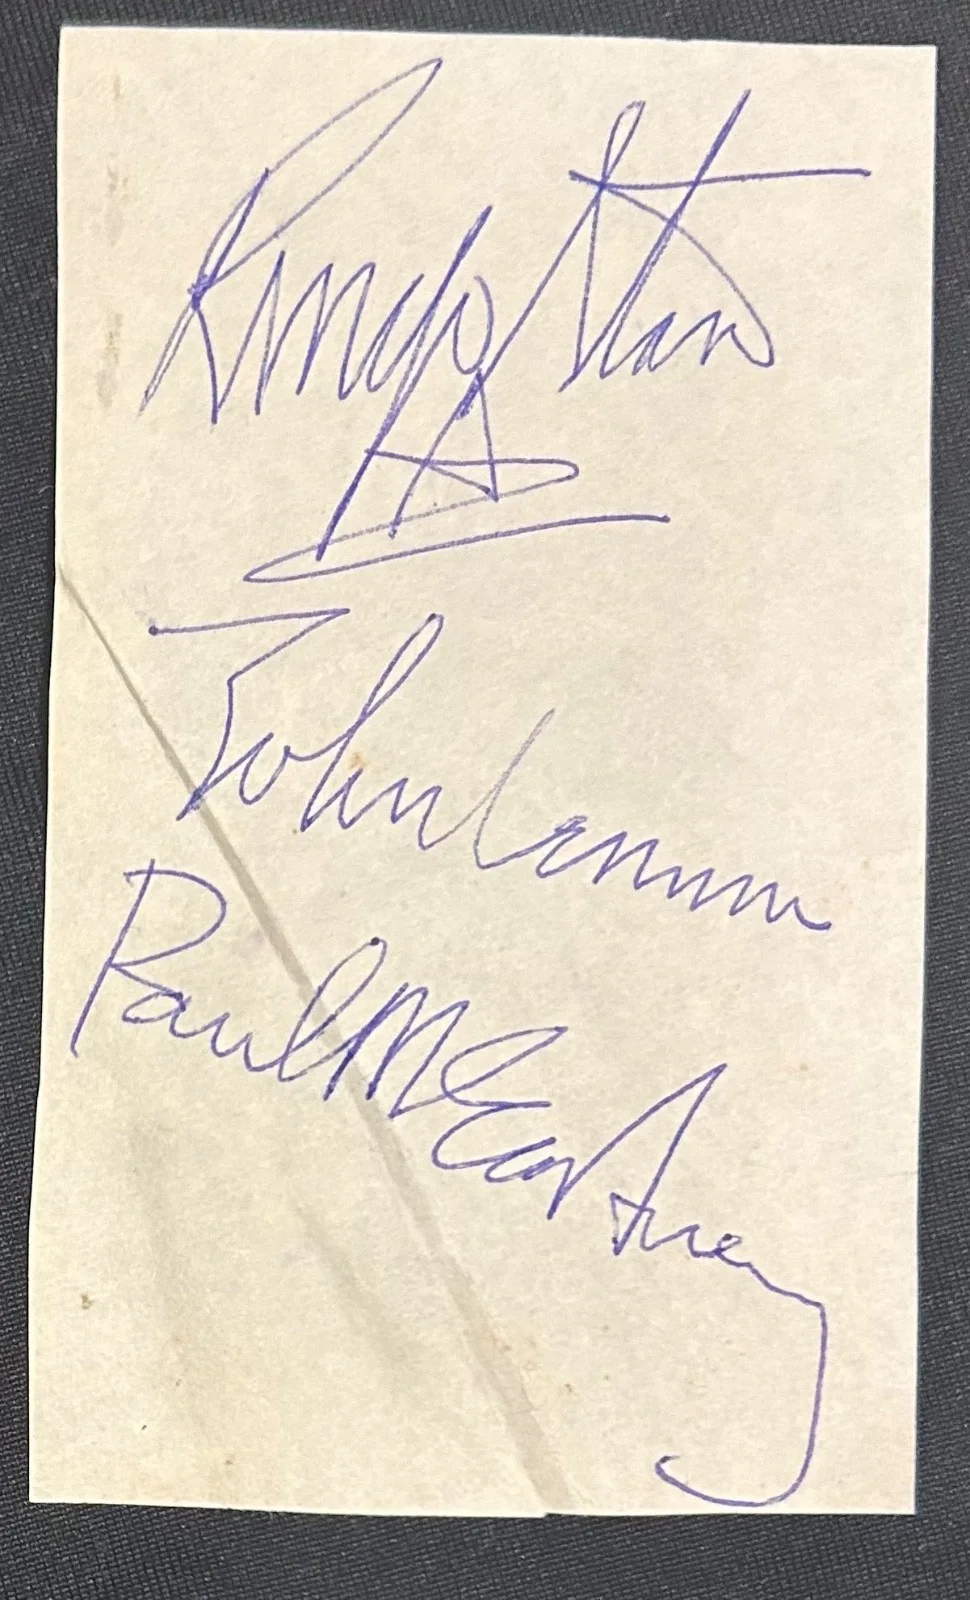 Ringo Starr
John Lennon
Paul McCartney